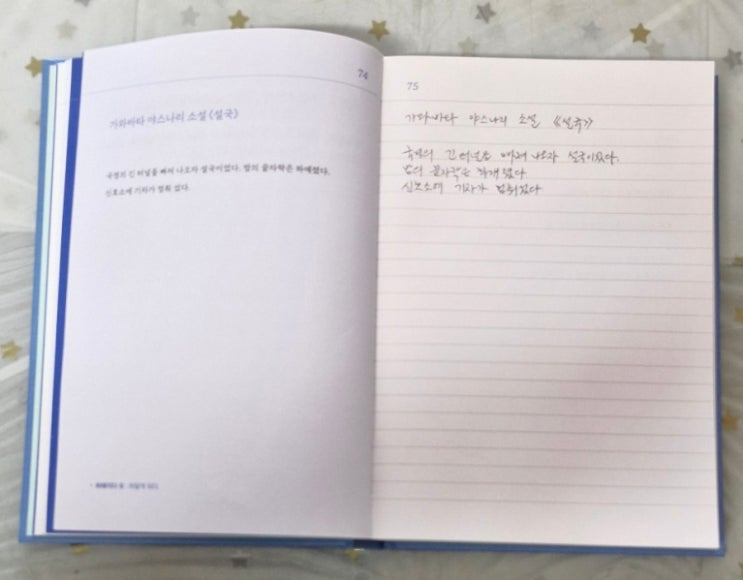 74
가와바타 야스나리 소설 《설국》
국경의 긴 터널을 빠져 나오자 설국이었다. 밤의 끝자락은 하얘졌다.
신호소에 기차가 멈춰 섰다.
75
가와바타 야스나리 소설 《설국》
국경의 긴 터널을 빠져 나오자 설국이었다.
밤의 끝자락은 하얘졌다.
신호소에 기차가 멈춰섰다